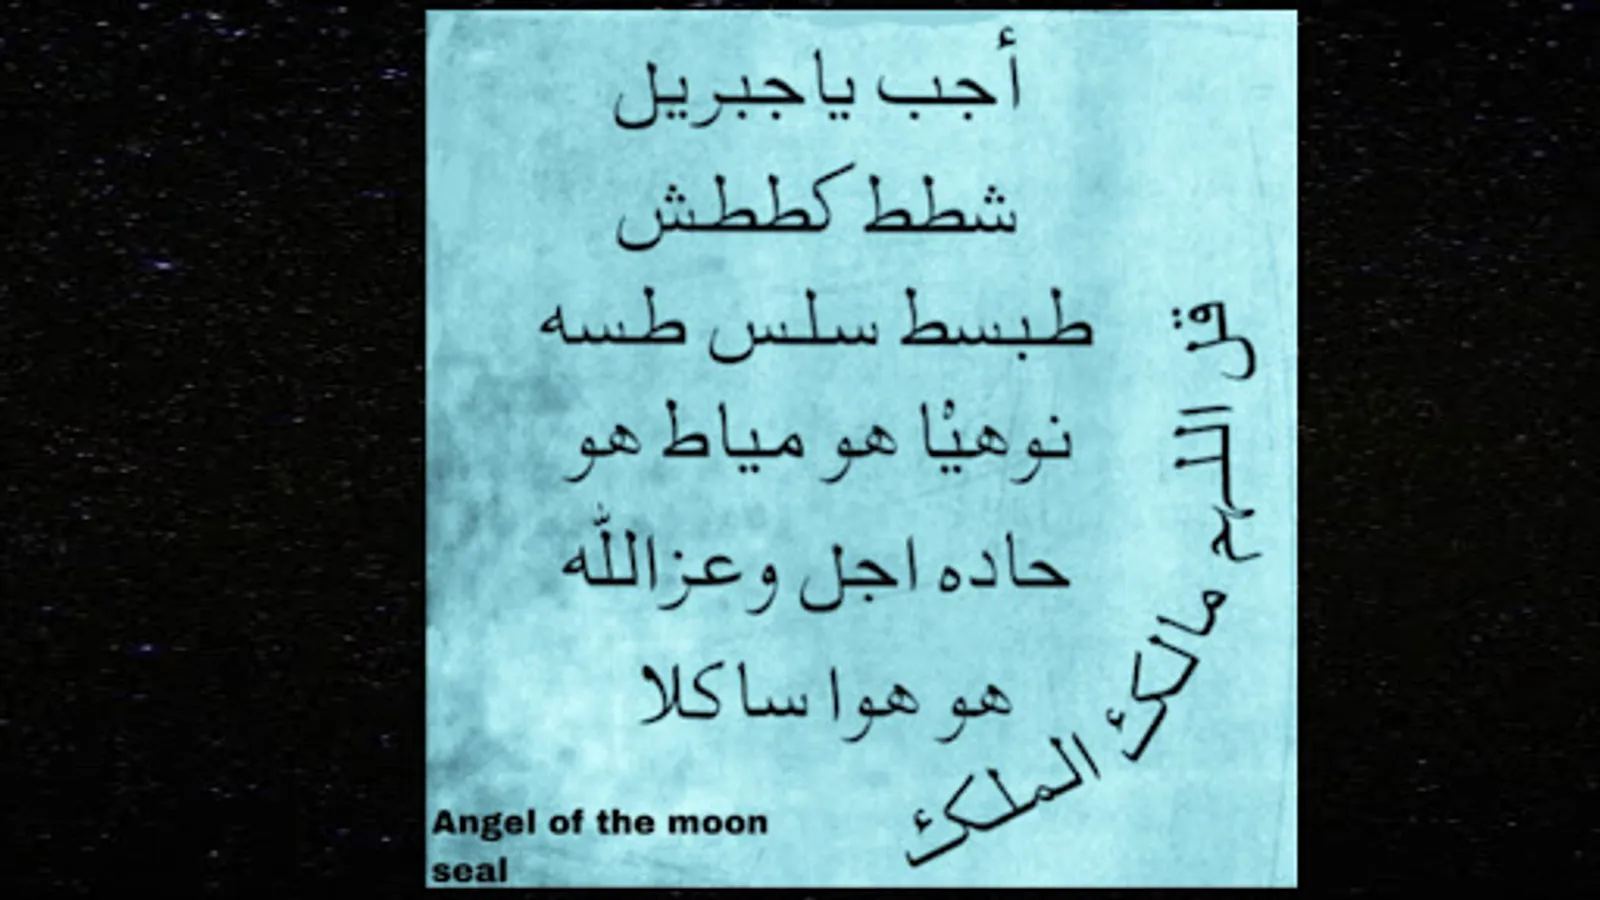 أجب ياجبريل
شطط كططش
طبسط سلس طسه
نوهيْا هو مياط هو
حاده اجل وعزاللّه
هو هوا ساكلا
قل اللهم مالك الملك
Angel of the moon
seal